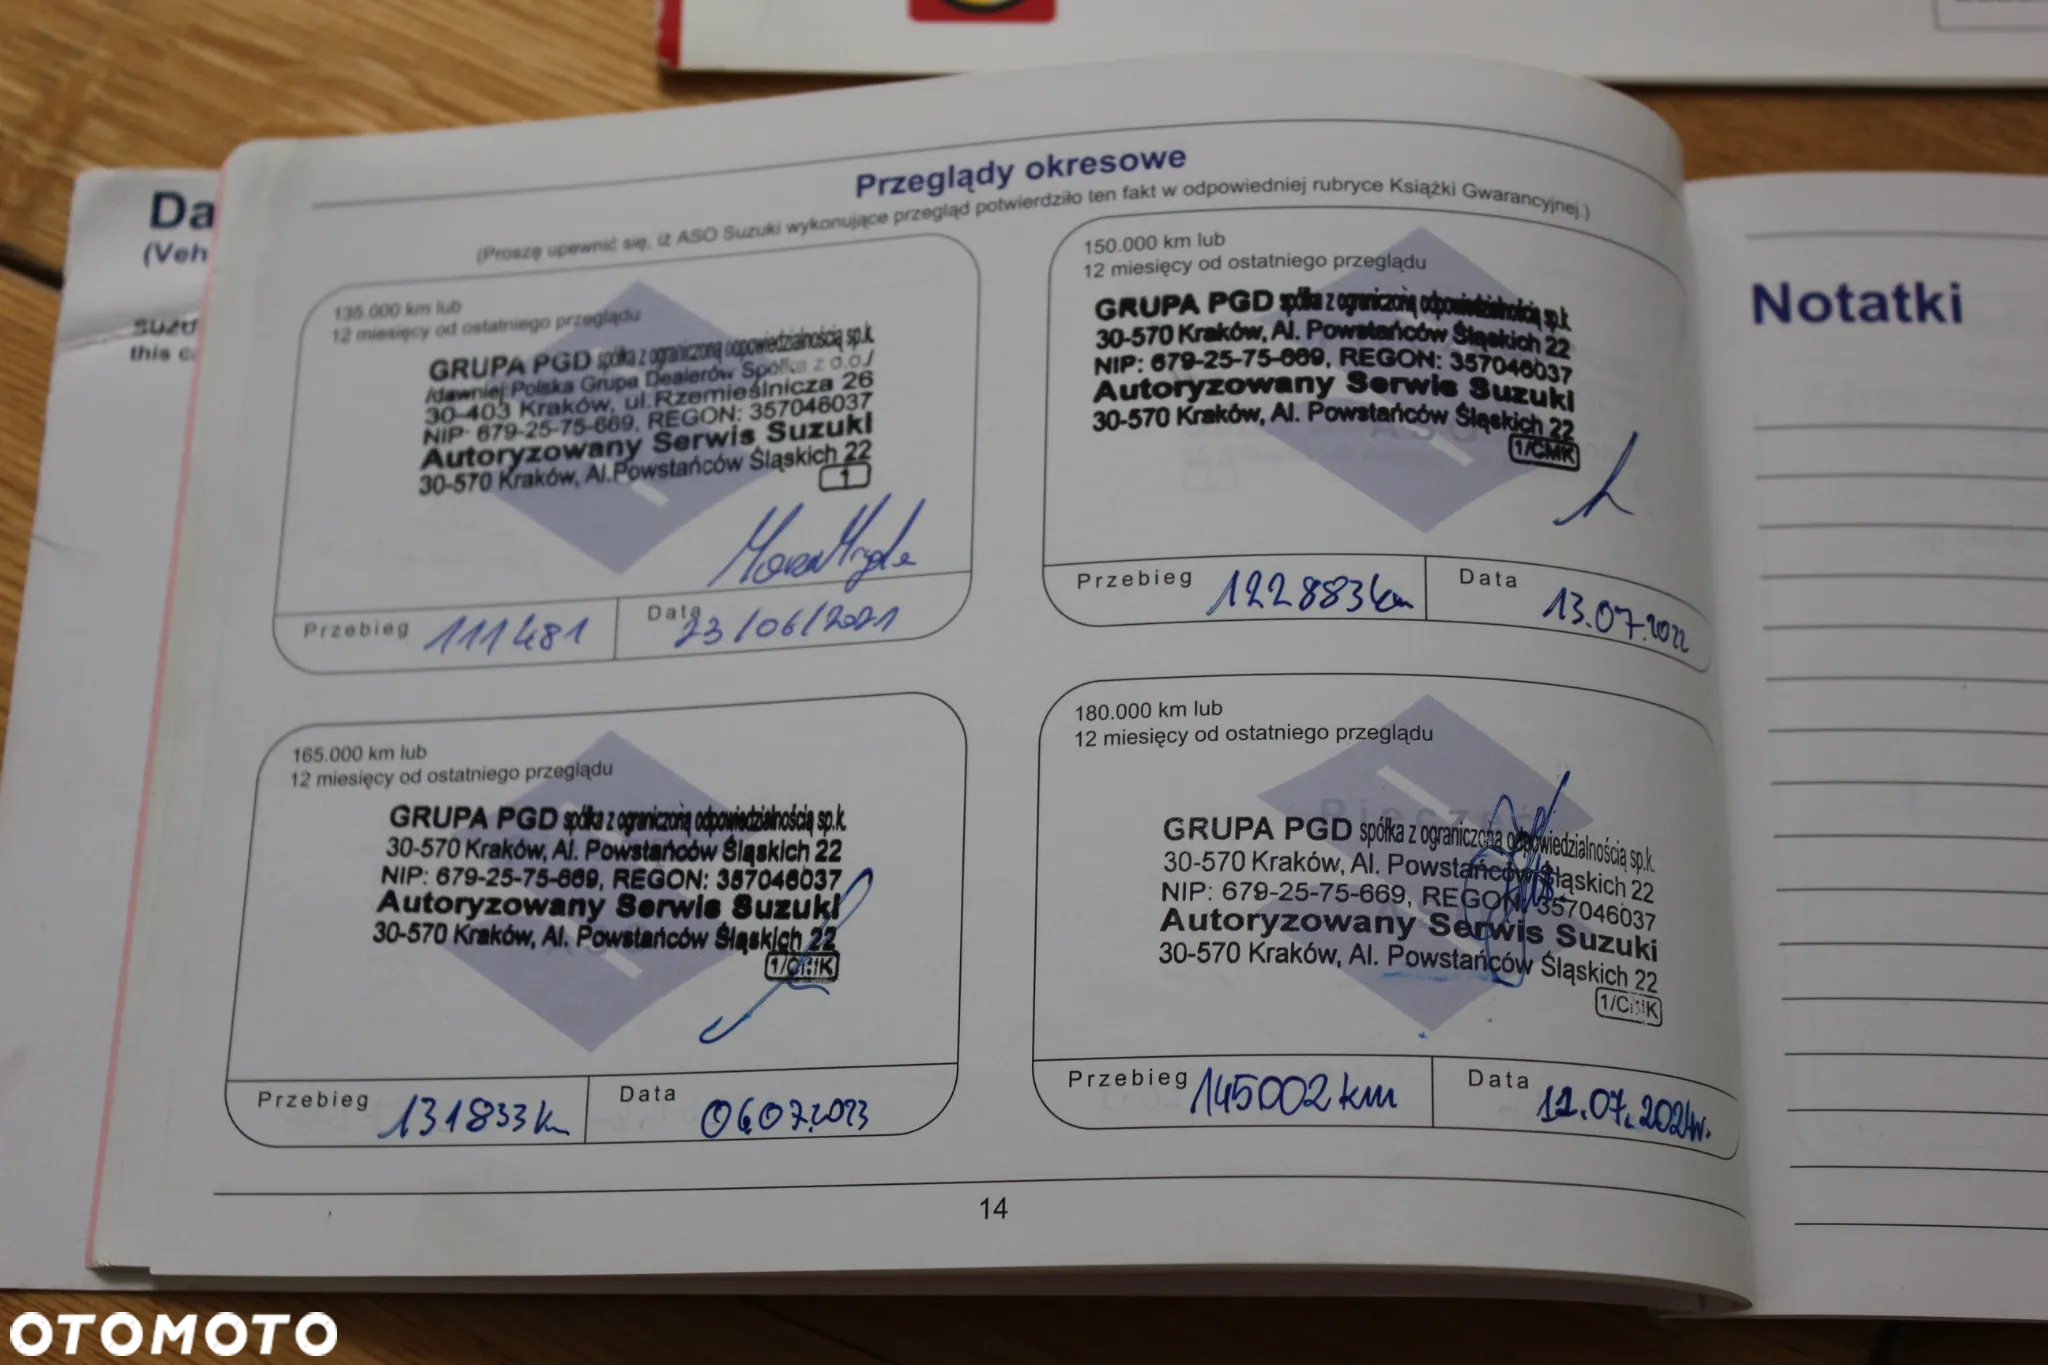 Da
(Veh
SUZU
this ca
Przeglądy okresowe
(Proszę upewnić się, iż ASO Suzuki wykonujące przegląd potwierdziło ten fakt w odpowiedniej rubryce Książki Gwarancyjnej.)
135.000 km lub
12 miesięcy od ostatniego przeglądu
GRUPA PGD spółka z ograniczoną odpowiedzialnością sp.k.
/dawniej Polska Grupa Dealerów Spółka z o.o./
30-403 Kraków, ul.Rzemieślnicza 26
NIP 679-25-75-669, REGON: 357046037
Autoryzowany Serwis Suzuki
30-570 Kraków, Al.Powstańców Śląskich 22
1
Przebieg 111481
Data 23/06/2021
150.000 km lub
12 miesięcy od ostatniego przeglądu
GRUPA PGD spółka z ograniczoną odpowiedzialnością sp.k.
30-570 Kraków, Al. Powstańców Śląskich 22
NIP: 679-25-75-669, REGON: 357046037
Autoryzowany Serwis Suzuki
30-570 Kraków, Al. Powstańców Śląskich 22
ASO
1/CMK
Przebieg 122883km
Data 13.07.2022
165.000 km lub
12 miesięcy od ostatniego przeglądu
GRUPA PGD spółka z ograniczoną odpowiedzialnością sp.k.
30-570 Kraków, Al. Powstańców Śląskich 22
NIP: 679-25-75-669, REGON: 357046037
Autoryzowany Serwis Suzuki
30-570 Kraków, Al. Powstańców Śląskich 22
1/CMK
Przebieg 131833km
Data 06.07.2023
180.000 km lub
12 miesięcy od ostatniego przeglądu
GRUPA PGD spółka z ograniczoną odpowiedzialnością sp.k.
30-570 Kraków, Al. Powstańców Śląskich 22
NIP: 679-25-75-669, REGON: 357046037
Autoryzowany Serwis Suzuki
30-570 Kraków, Al. Powstańców Śląskich 22
1/CMK
Przebieg 145002km
Data 11.07.2024r.
14
Notatki
OTOMOTO